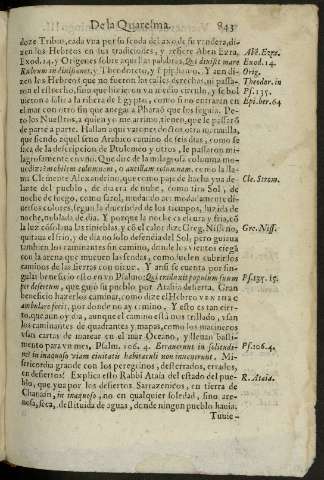 De la Quaresma. 843
doze Tribus, cada vna por su senda del axo de su vandera, di-
zen los Hebreos en sus tradiciones, y refiere Aben Ezra,
Exod. 14. y Origenes sobre aquellas palabras, Qui divisit mare
Rubrum in divisiones, y Theodoreto, y Epiphanio. Y aun di-
zen los Hebreos que no fueron las calles derechas, ni passa-
ron el estrecho, sino que hizieron vn medio circulo, y se bol
uieron a salir a la ribera de Egypto, como si no entraran en
el mar con otro fin que anegar a Pharaó que los seguia. Pe-
ro los Nuestros, a quien yo me arrimo, tienen, que le passaró
de parte a parte. Hallan aqui varones doctos otra marauilla,
que siendo aquel seno Arabico camino de seis dias, como se
saca de la descripcion de Ptolomeo y otros, le passaron mi-
lagrosamente en vno. Que dire de la milagrosa coluumna mo-
uediza: mobilem columnam, o ancillam columnam, como la lla-
ma Clemente Alexandrino, que como page de hacha yua de-
lante del pueblo, de dia era de nube, como tira Sol, de
noche de fuego, como farol, mudando acomodadamente di-
uersos colores, segun la diuersidad de los tiempos, luzida de
noche, nublada de dia. Y porque la noche es escura y fria, có
la luz cósolaua las tinieblas, y có el calor dize Greg. Nisseno,
quitaua el frio, y de dia no solo defendia del Sol, pero guiaua
tambien los caminantes sin camino, donde los vientos ciegá
con la arena que mueuen las sendas, como suelen cubrir los
caminos de las sierras con nieue. Y assi se cuenta por sin-
gular beneficio esto en vn Psalmo: Qui traduxit populum suum
per desertum, que guió su pueblo por Arabia desierta. Gran
beneficio hazer los caminar, como dize el Hebreo VENINAC
ambulare fecit, por donde no ay camino. Y esto es tan cier-
to, que aun oy dia, aunque el camino está mas trillado, vsan
los caminantes de quadrantes y mapas, como los marineros
vsan cartas de marear en el mar Oceano, y lleuan basti-
mento para vn mes, Psalm. 106. 4. Erraverunt in solitudi-
ne in inaquoso viam ciuitatis habitaculi non inuenerunt. Mi-
sericordia grande con los peregrinos, desterrados, errados,
en desiertos! Explica esto Rabbi Ataia del estado del pue-
blo, que yua por los desiertos Sarrazenicos, en tierra de
Chanaán, in inaquoso, no en qualquier soledad, sino are-
nosa, seca, destituida de aguas, donde ningun pueblo hauia.
Tuuie-
Abé Ezra.
Exod. 14.
Orig.
Theodor. in
Ps. 135.
Epi. her. 64
Cle. Strom.
Gre. Niss.
Ps. 135. 15.
Ps. 106. 4.
R. Ataia.